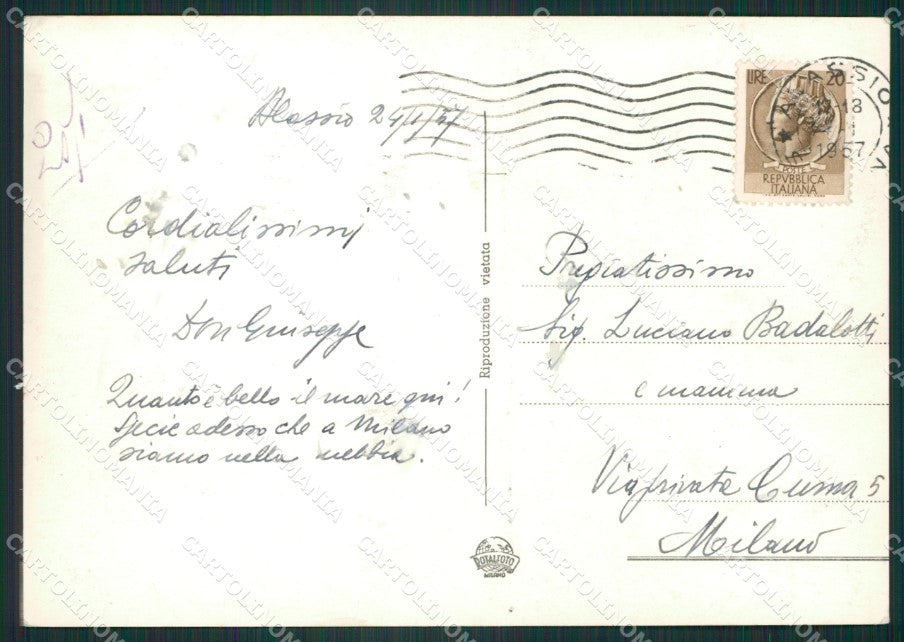 Alassio 24/1/57
Cordialissimi
saluti
Don Giuseppe
Quanto è bello il mare qui!
Specie adesso che a Milano
siamo nella nebbia.
Riproduzione vietata
ROTALFOTO
MILANO
LIRE 20
POSTE
REPVBBLICA
ITALIANA
ALASSIO
17-18
1957
Pregiatissimo
Sig. Luciano Badalotti
e mamma
Via privata Cuma 5
Milano
CARTOLINOMANIA